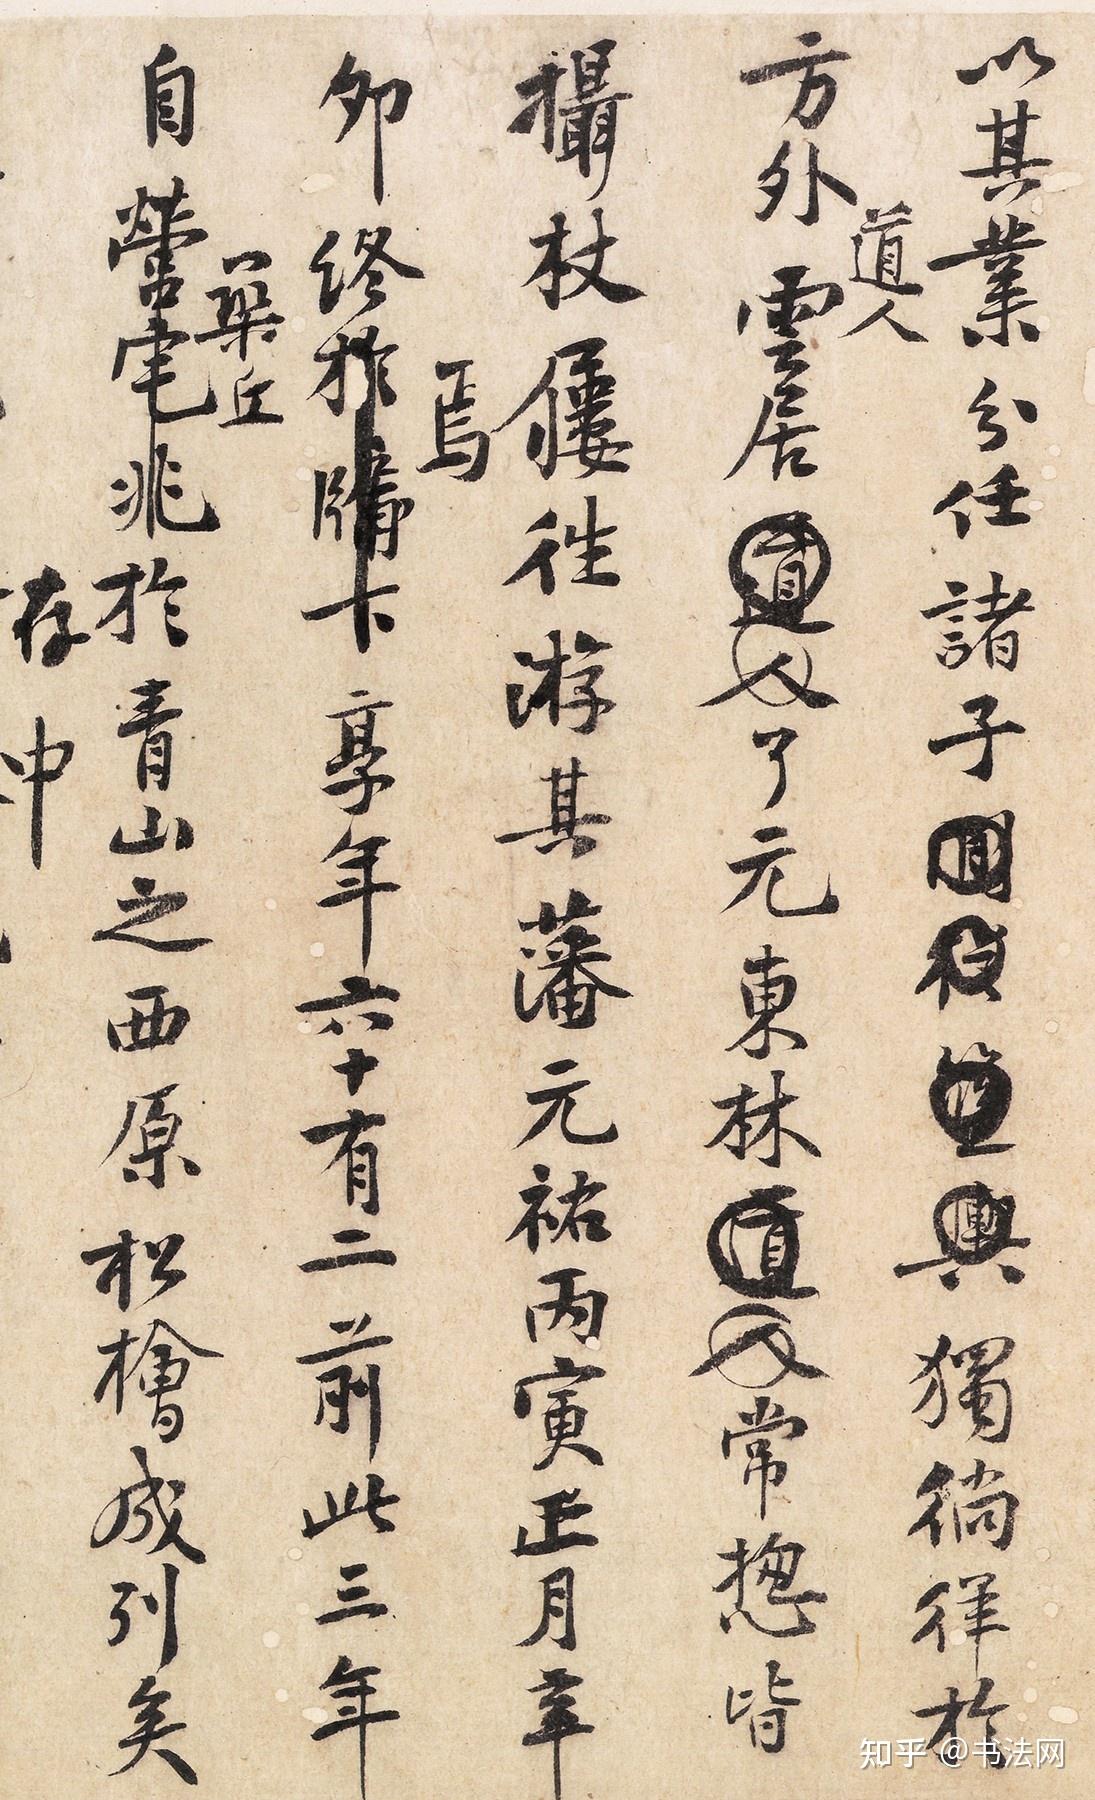 以其業分任諸子獨徜徉於
道人
方外雲居道人了元東林道人常揔皆
攝杖屨往游其藩元祐丙寅正月辛
焉
卯終於牖下享年六十有二前此三年
一築丘
自營宅兆於青山之西原松檜成列矣
存中
知乎 @书法网